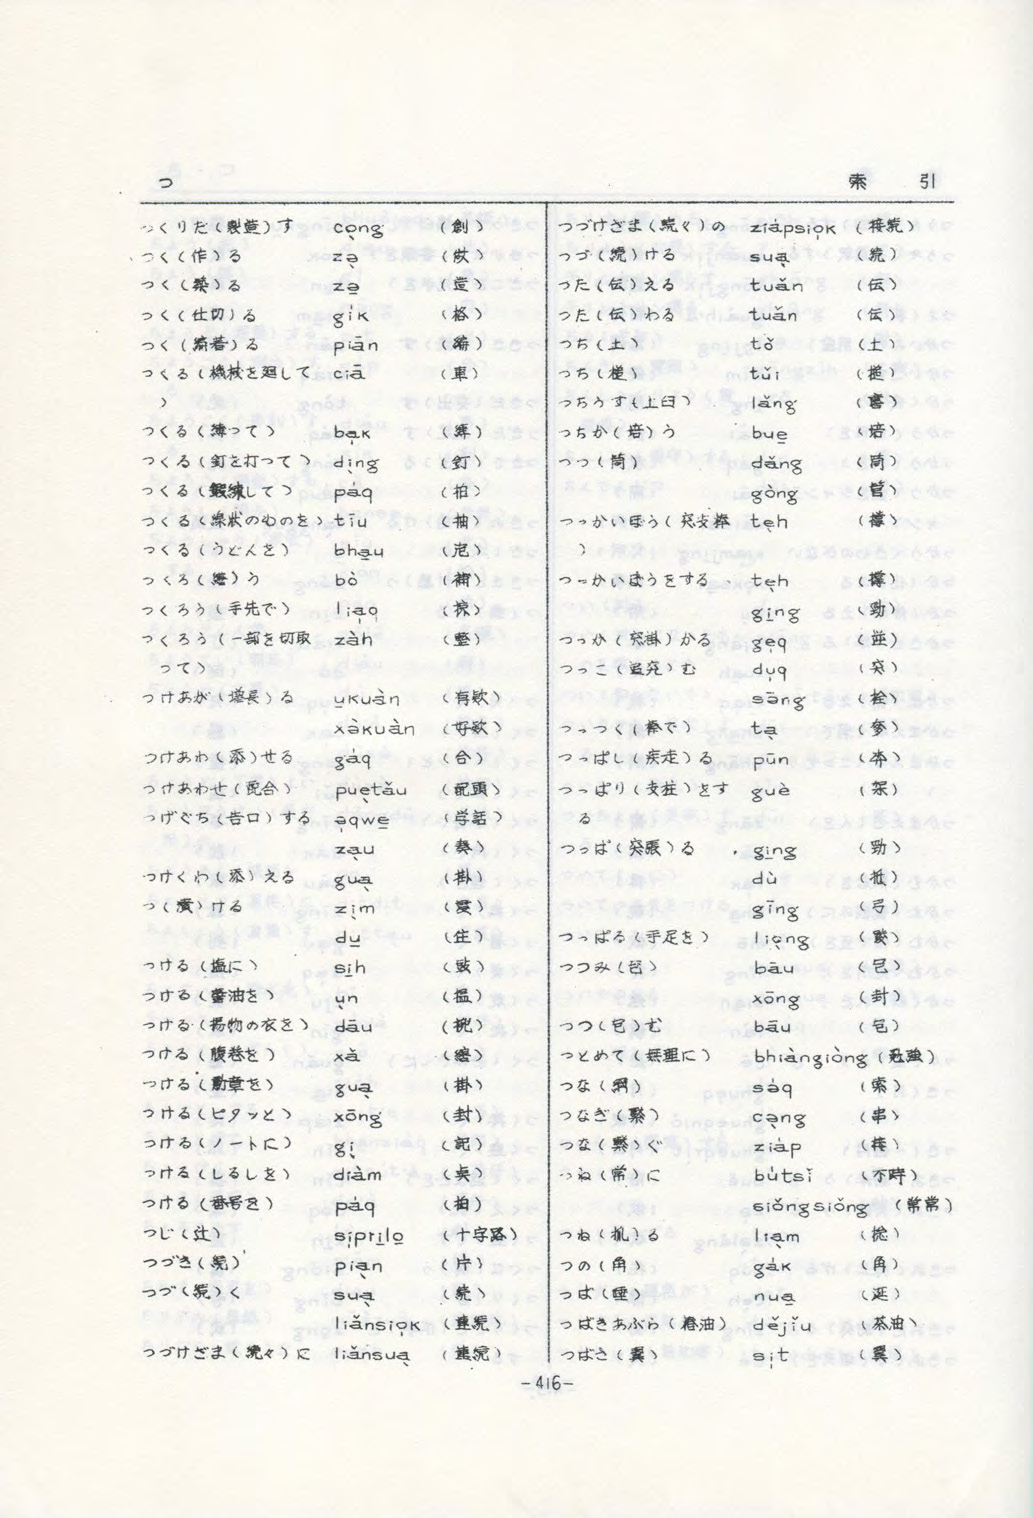 つ 索引
つくりだ(製造)す cọng (創)
つく(作)る zə (做)
つく(築)る zə̲ (造)
つく(仕切)る gi̍k (格)
つく(綴着)る piān
つくる(機杖を廻して ciā (車)
)
つくる(縛って) bạk (縛)
つくる(釘を打って) dịng (釘)
つくる(鍛練して) páq (拍)
つくる(線状のものを) tīu (抽)
つくる(うどんを) bhạu
つくろ(繕)う bò (補)
つくろう(手先で) liạq (掠)
つくろう(一部を切取 zàh (整)
って)
つけあが(増長)る u̲kuàn (有款)
xàkuàn (好款)
つけあわ(添)せる gáq (合)
つけあわせ(配合) puẹtǎu (配頭)
つげぐち(告口)する ạqwe̲ (学話)
zạu (奏)
つけくわ(添)える guạ (掛)
つ(漬)ける zịm (浸)
du̲ (注)
つける(塩に) si̲h (豉)
つける(醤油を) ụn (搵)
つける(揚物の衣を) dāu
つける(腹巻を) xà
つける(勲章を) guạ (掛)
つける(ピタッと) xōng (封)
つける(ノートに) gị (記)
つける(しるしを) diàm (点)
つける(番号を) páq (拍)
つじ(辻) sịpri̲lo̲ (十字路)
つづき(続) piạn (片)
つづ(続)く suạ (続)
liǎnsiọk (連続)
つづけざま(続々)に liǎnsuạ (連続)
つづけざま(続々)の ziápsiọk (接続)
つづ(続)ける suạ (続)
つた(伝)える tuǎn (伝)
つた(伝)わる tuǎn (伝)
つち(土) tò (土)
つち(槌) tǔi (槌)
つちうす(土臼) lǎng (礱)
つちか(培)う bue̲ (培)
つつ(筒) dǎng (筒)
gòng (管)
つっかいぼう(突支棒 tẹh (撐)
)
つっかいぼうをする tẹh (撐)
gi̲ng (勁)
つっか(突掛)かる gẹq (逆)
つっこ(追究)む dụq (突)
sāng (栓)
つっつく(棒で) tạ
つっぱし(疾走)る pūn (奔)
つっぱり(支柱)をす guè (架)
る
つっぱ(突張)る gi̲ng (勁)
dù (抵)
gīng (弓)
つっぱる(手足を) liọng
つつみ(包) bāu (包)
xōng (封)
つつ(包)む bāu (包)
つとめて(無理に) bhiàngiòng (勉強)
つな(綱) sáq (索)
つなぎ(繋) cạng (串)
つな(繋)ぐ ziáp (接)
つね(常)に bútsǐ (不時)
siǒngsiǒng (常常)
つね(抓)る liạm (捻)
つの(角) gák (角)
つば(唾) nua̲ (涎)
つばきあぶら(椿油) dějǐu (茶油)
つばさ(翼) sịt (翼)
-416-